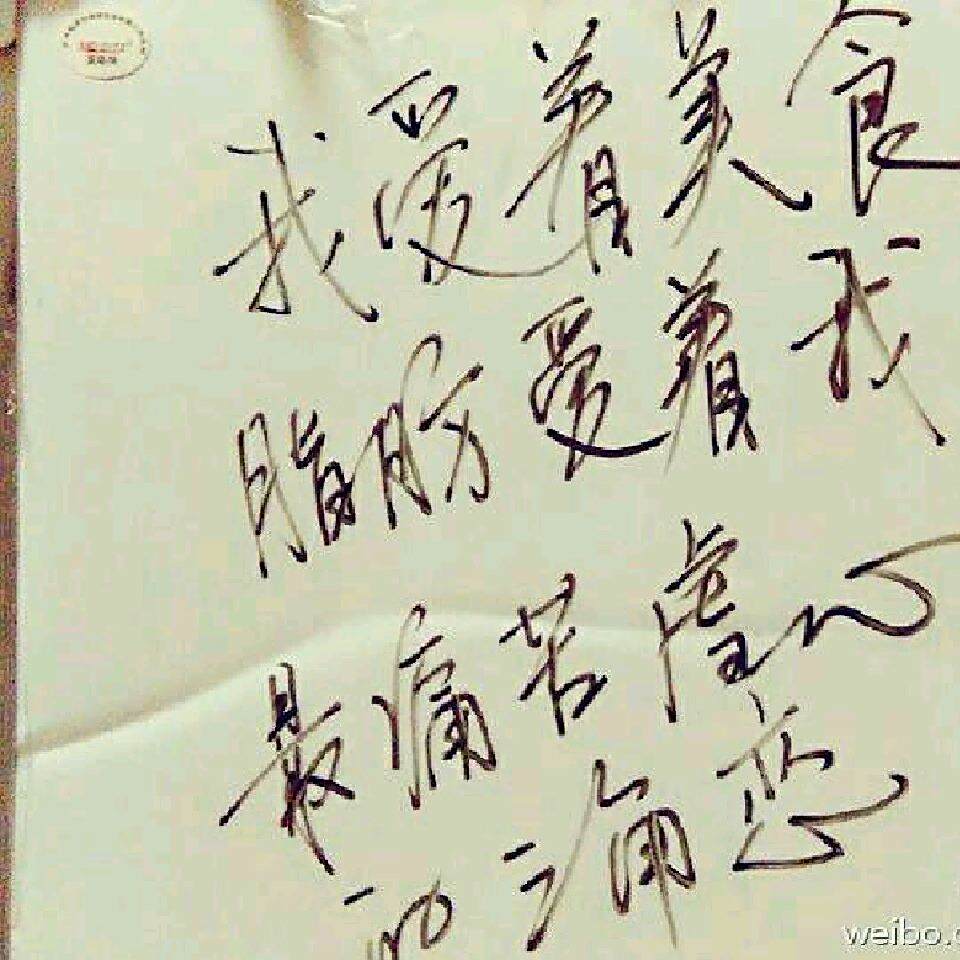 我爱着美食
脂肪爱着我
最痛苦虐心
的三角恋
weibo.c